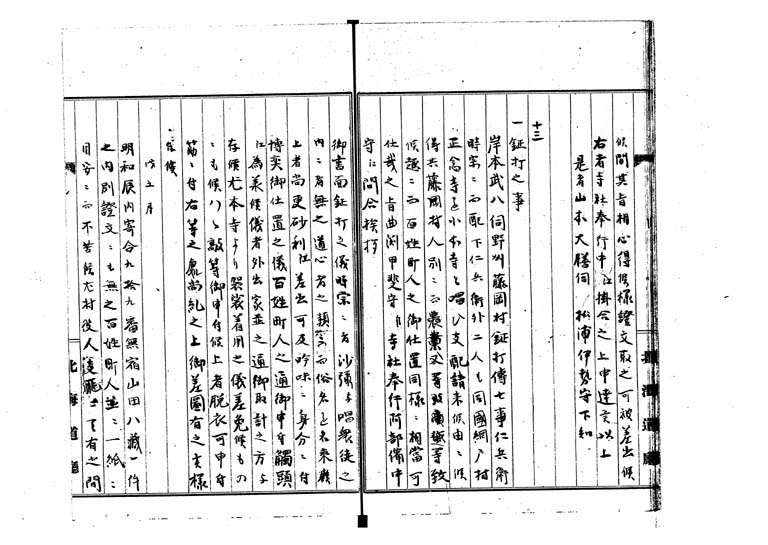 候間其旨相心得候様證文取之可被差出候
右者寺社奉行中江掛合之上申達ス以上
是者山本大膳伺 松浦伊勢守下知
十三
一鉦打之事
岸本武八伺野州藤岡村鉦打傳七事仁兵衛
時宗ニ而配下仁兵衛外二人も同國網戸村
正念寺を小本寺と唱ひ支配請来候由ニ候
得共藤岡村人別ニ而農業又等致
候趣ニ而百姓町人之御仕置同様ニ相當可
仕哉之旨曲渕甲斐守ゟ寺社奉行阿部備中
守江問合挨拶
御書面鉦打之儀時宗ニ者沙彌与唱衆徒之
内ニ者無之道心者之類ニ而俗名を名来候
上者尚更砂利江差出可及吟味ニ身分ニ付
博奕御仕置之儀百姓町人之通御申付觸頭
江為差候儀者外出家並之通御取計之方与
存候尤本寺ゟ袈裟着用之儀差免候もの
ニも候ハヽ敲等御申付候上者脱衣可申付
筋ニ付右等之廉尚糺之上御差圖有之候様
存候
明和辰内寄合九拾九番無宿山田八藏一件
之内別證文ニも無之百姓町人並ニ一紙ニ
目安ニ而不苦候尤村役人 有之間
北海道廳
北海道廳